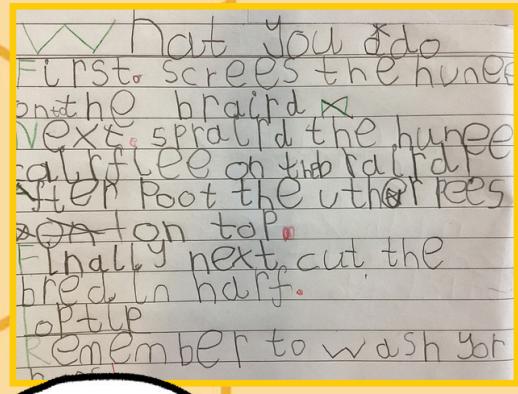 What you do
First. screes the hunee
on the braird
Next. spralrd the hunee
callrflee on the bralrd
After Poot the uther pees
on top.
Finally next cut the
bred in harf.
Toptip
Remember to wash yor